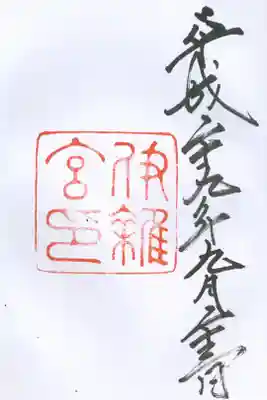 平成二十九年九月二十日
伊雜
宮印